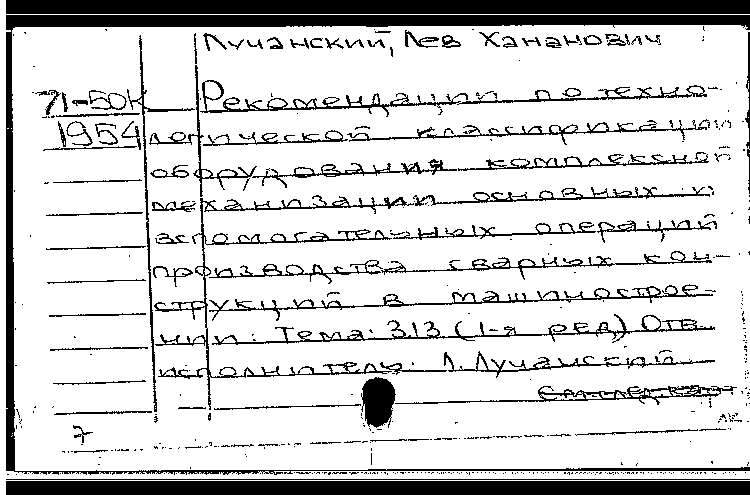 Лучанский, Лев Хананович
71-50К Рекомендации по техно-
1954 логической классификации
оборудования комплексной
механизации основных и
вспомогательных операций
производства сварных кон-
струкций в машинострое-
нии: Тема: 313 (1-я ред) Отв.
исполнитель: Л. Лучанский.
См. след. карт.
7